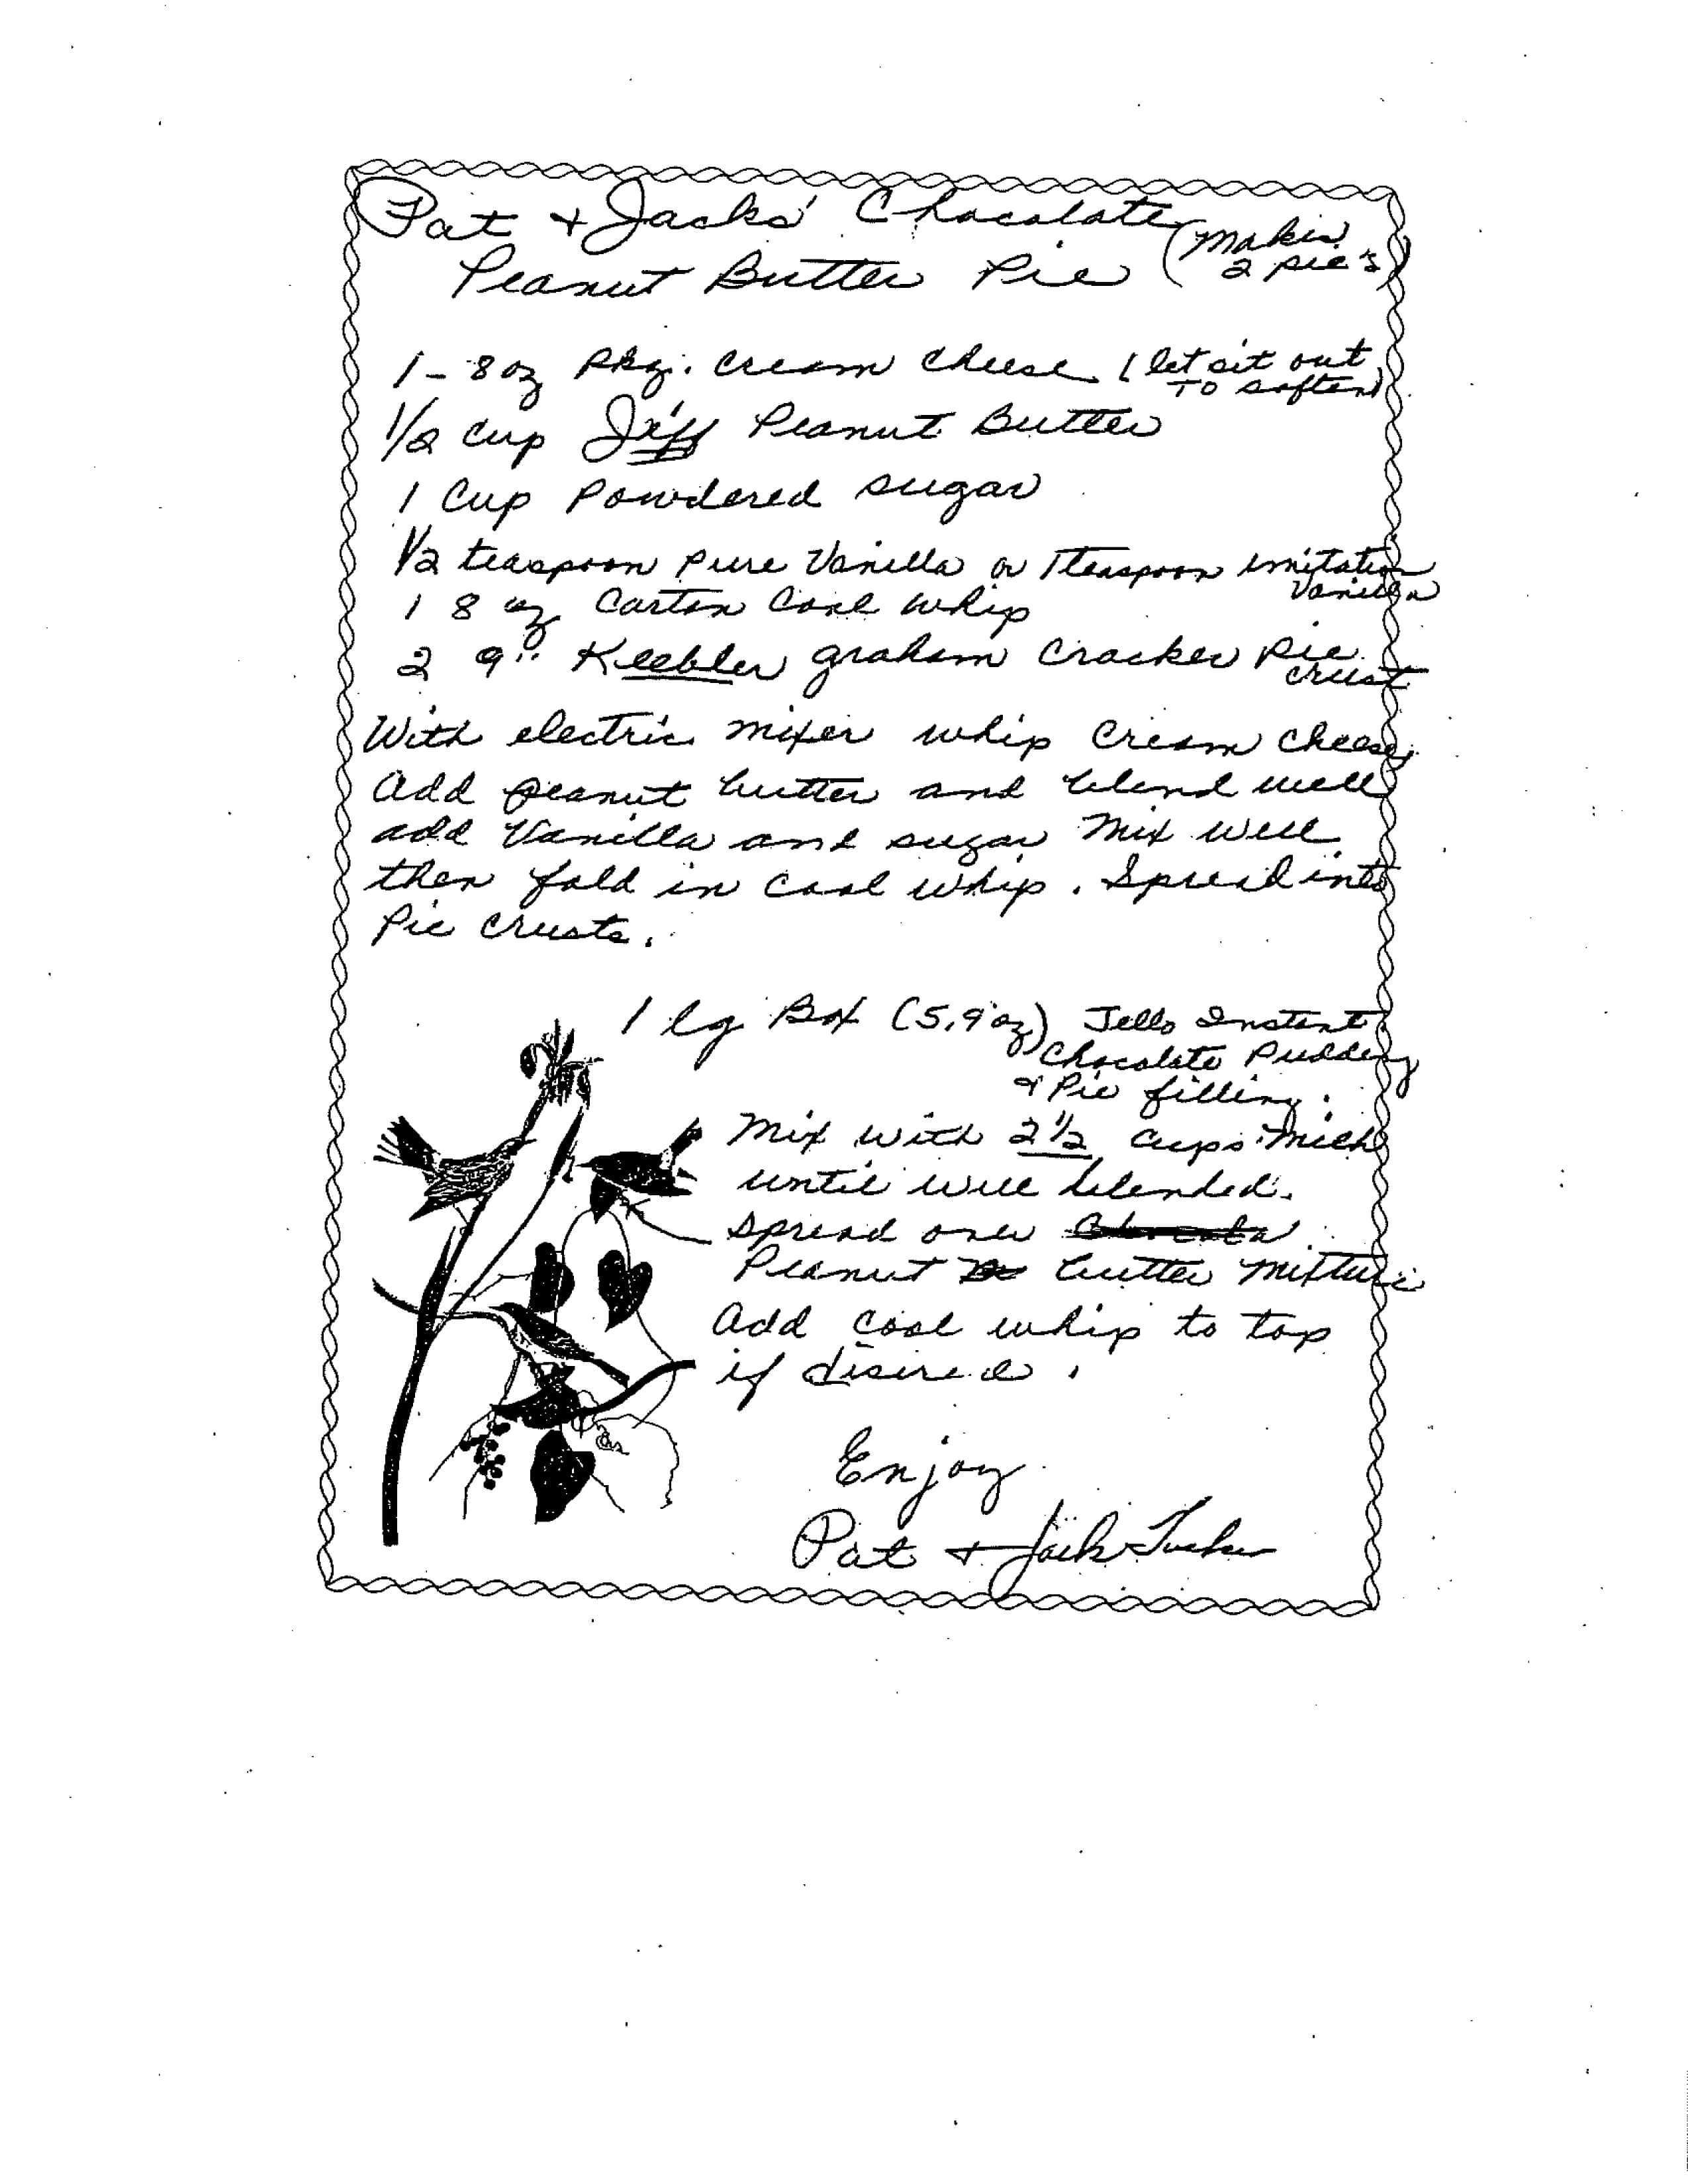 Pat + Jacks' Chocolate
Peanut Butter Pie (Makes
2 pie's)
1 - 8 oz Pkg. Cream Cheese (let sit out
TO soften)
1/2 cup Jiff Peanut Butter
1 Cup Powdered sugar
1/2 teaspoon pure Vanilla or 1 teaspoon imitation
Vanilla
1 8 oz Carton Cool Whip
2 9" Keebler graham Cracker Pie
Crust
With electric mixer whip Cream Cheese,
Add peanut butter and blend well
add Vanilla and sugar Mix well
then fold in Cool Whip. Spread into
Pie Crusts.
1 lg Box (5.9 oz) Jello Instant
Chocolate Pudding
& Pie filling.
Mix with 2 1/2 Cups Milk
until well blended.
spread over
Peanut butter Mixture
Add Cool whip to top
if desired.
Enjoy
Pat + Jack Tucker